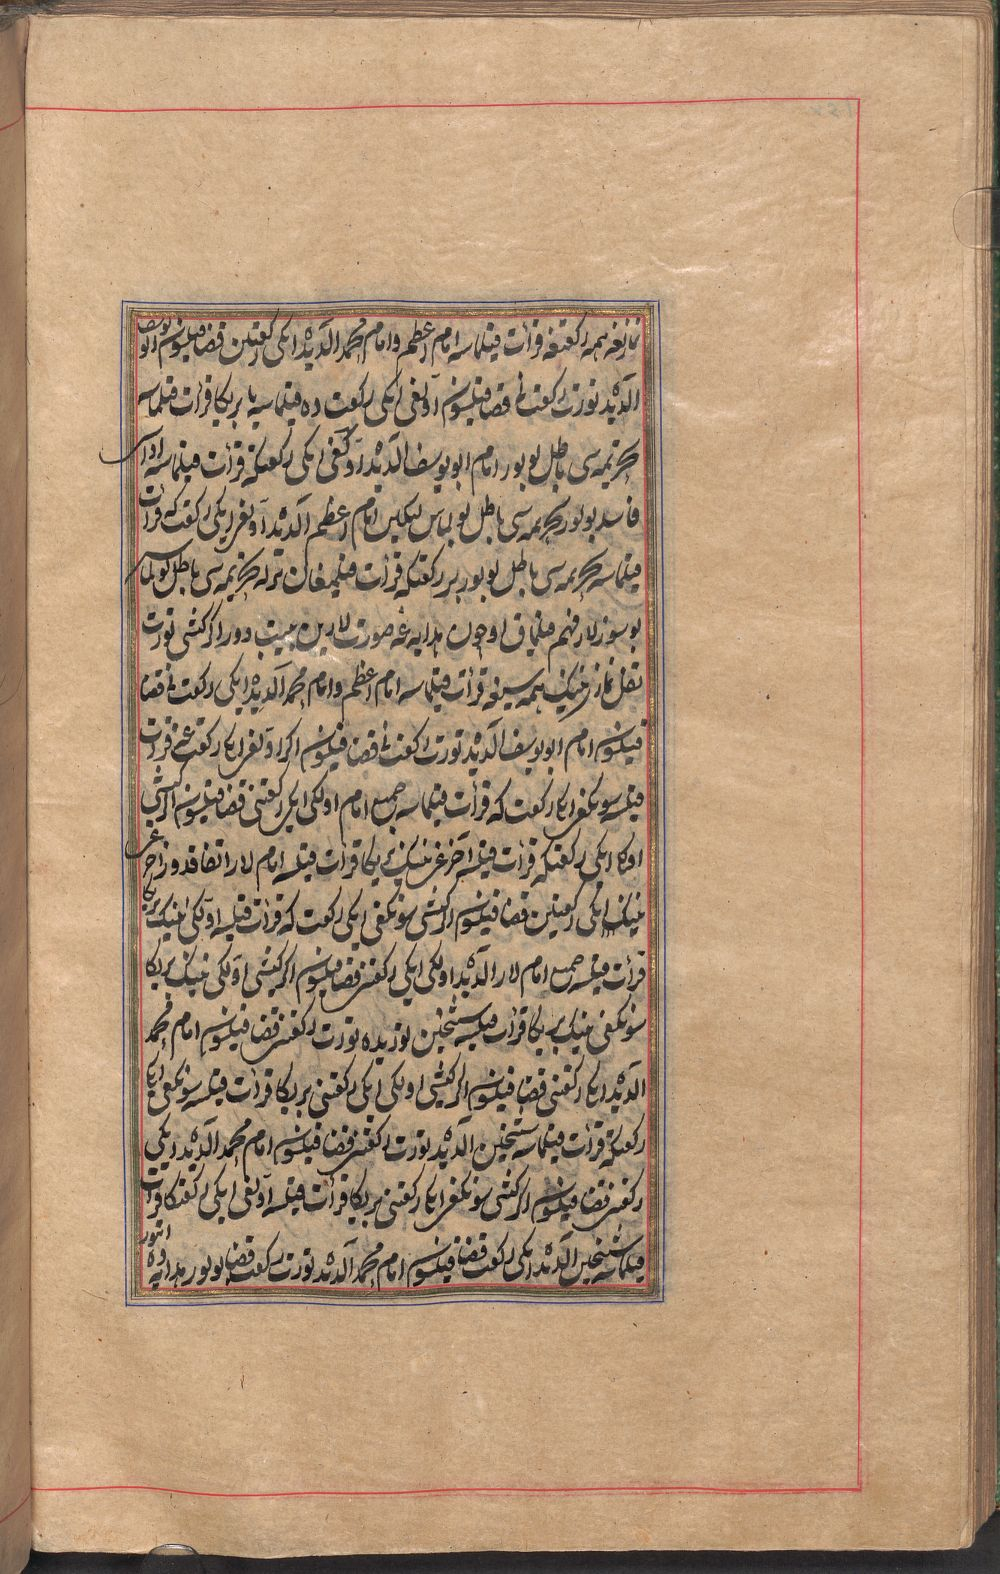 نمازنغه همه رکعتغه قرأت قیلماسه امام اعظم و امام محمد الّدیدا ایکی رکعتین قضا قیلسون ابو یوسف
الدیده تورت رکعت نی قضا قیلسون اولغی ایکی رکعت ده قیلماسه یا بریکا قرأت قیلماسه
تحریمه سی باطل بولور امام ابو یوسف الدیدا اولغی ایکی رکعتکه قرأت قیلماسه ادا سی
فاسد بولور تحریمه سی باطل بولماس لیکین امام اعظم الدیدا اولغی ایکی رکعت که قرأت
قیلماسه تحریمه سی باطل بولور بر رکعتکه قرأت قیلمغان برله تحریمه سی باطل بولماس
بو سوزلار فهم قیلماق اوچون هدایه غه صورت لارین بیت دور اگر کشی تورت
نفل نمازنینک همه سیغه قرأت قیلماسه امام اعظم و امام محمد الدیدا ایکی رکعت نی قضا
قیلسون امام ابو یوسف الدیده تورت رکعت نی قضا قیلسون اگر اولغی ایکی رکعت غه قرأت
قیلسه سونکغی ایکی رکعت که قرأت قیلماسه جمیع امام اولکی ایکی رکعتنی قضا قیلسون اگر کشی
اولکا ایکی رکعتکه قرأت قیلسه آخرغی نینک بریکا قرأت قیلسه امام لار اتفاقدور آخرغی
نینک ایکی رکعتین قضا قیلسون اگر کشی سونکغی ایکی رکعت که قرأت قیلسه اولکی نینک بریکا
قرأت قیلسه جمیع امام لار الدیدا اولکی ایکی رکعتنی قضا قیلسون اگر کیشی اولکی نینک بریکا
سونکغی نینک بریکا قرأت قیلسه شیخین نوزدیده تورت رکعتنی قضا قیلسون امام محمد
الدیدا ایکی رکعتنی قضا قیلسون اگر کیشی اولکی ایکی رکعتنی بریکا قرأت قیلسه سونکغی ایکی
رکعتکه قرأت قیلماسه شیخین الدیده تورت رکعتنی قضا قیلسون امام محمد الدیدا ایکی
رکعتنی قضا قیلسون اگر کشی سونکغی ایکی رکعتنی بریکا قرأت قیلسه اولغی ایکی رکعتکا قرأت
قیلماسه شیخین الدیدا ایکی رکعت قضا قیلسون امام محمد الدیده تورت رکعت قضا بولور هدایه ده